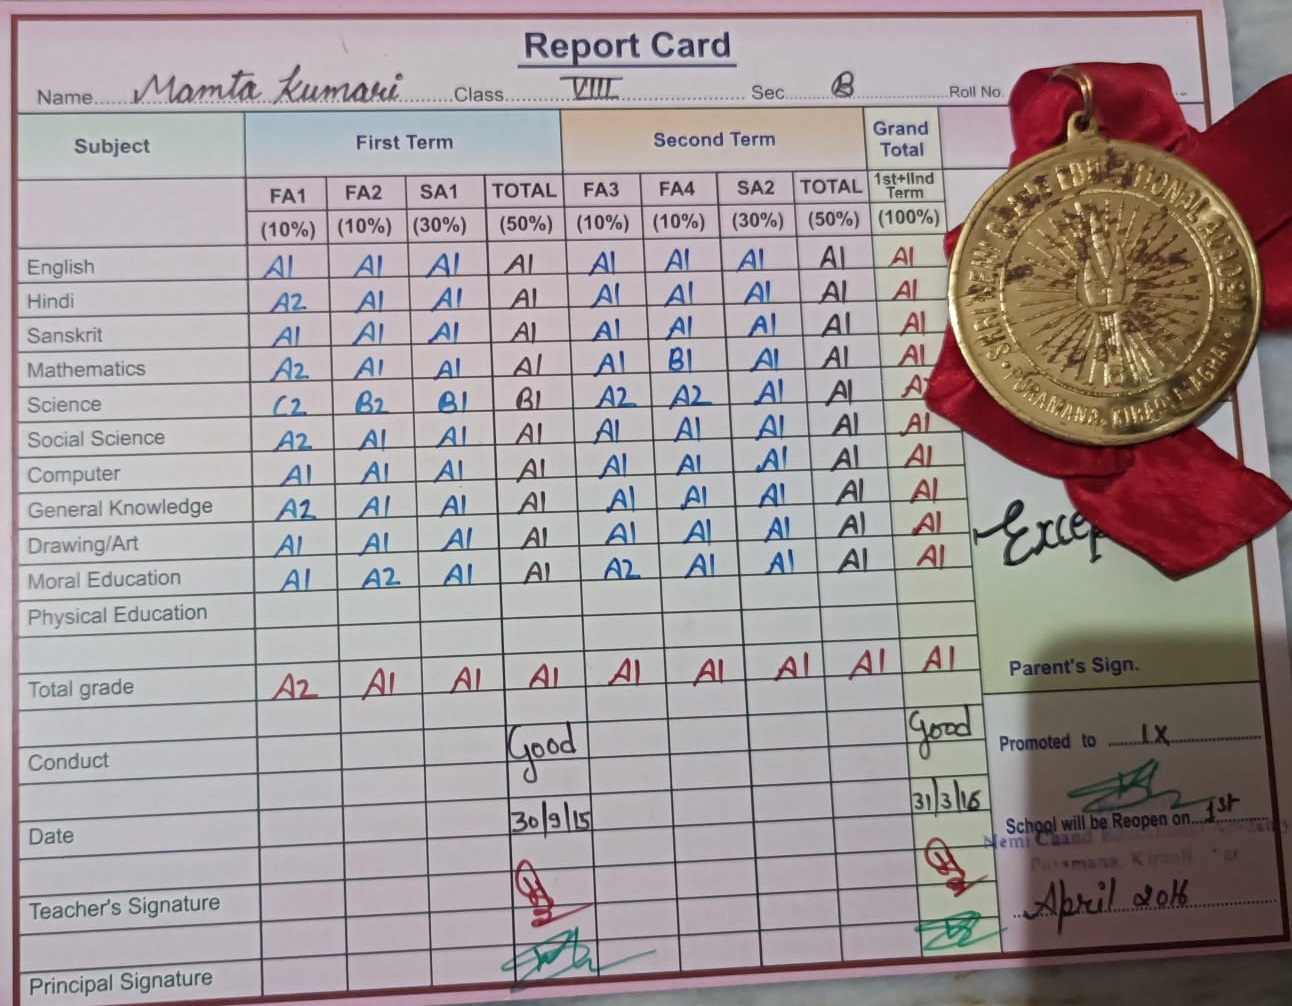 Report Card
Name Mamta Kumari Class VIII Sec B Roll No.
Subject First Term Second Term Grand Total
FA1 FA2 SA1 TOTAL FA3 FA4 SA2 TOTAL 1st+IInd Term
(10%) (10%) (30%) (50%) (10%) (10%) (30%) (50%) (100%)
English A1 A1 A1 A1 A1 A1 A1 A1 A1
Hindi A2 A1 A1 A1 A1 A1 A1 A1 A1
Sanskrit A1 A1 A1 A1 A1 A1 A1 A1 A1
Mathematics A2 A1 A1 A1 A1 B1 A1 A1 A1
Science C2 B2 B1 B1 A2 A2 A1 A1
Social Science A2 A1 A1 A1 A1 A1 A1 A1 A1
Computer A1 A1 A1 A1 A1 A1 A1 A1 A1
General Knowledge A2 A1 A1 A1 A1 A1 A1 A1 A1
Drawing/Art A1 A1 A1 A1 A1 A1 A1 A1 A1
Moral Education A1 A2 A1 A1 A2 A1 A1 A1 A1
Physical Education
Total grade A2 A1 A1 A1 A1 A1 A1 A1 A1
Conduct Good Good
Date 30/9/15 31/3/16
Teacher's Signature
Principal Signature
SHRI NEMI CHAND EDUCATIONAL ACADEMY
PURAMANA, KIRAOLI
Parent's Sign.
Promoted to IX
School will be Reopen on 1st
Nemi Chand
April 2016